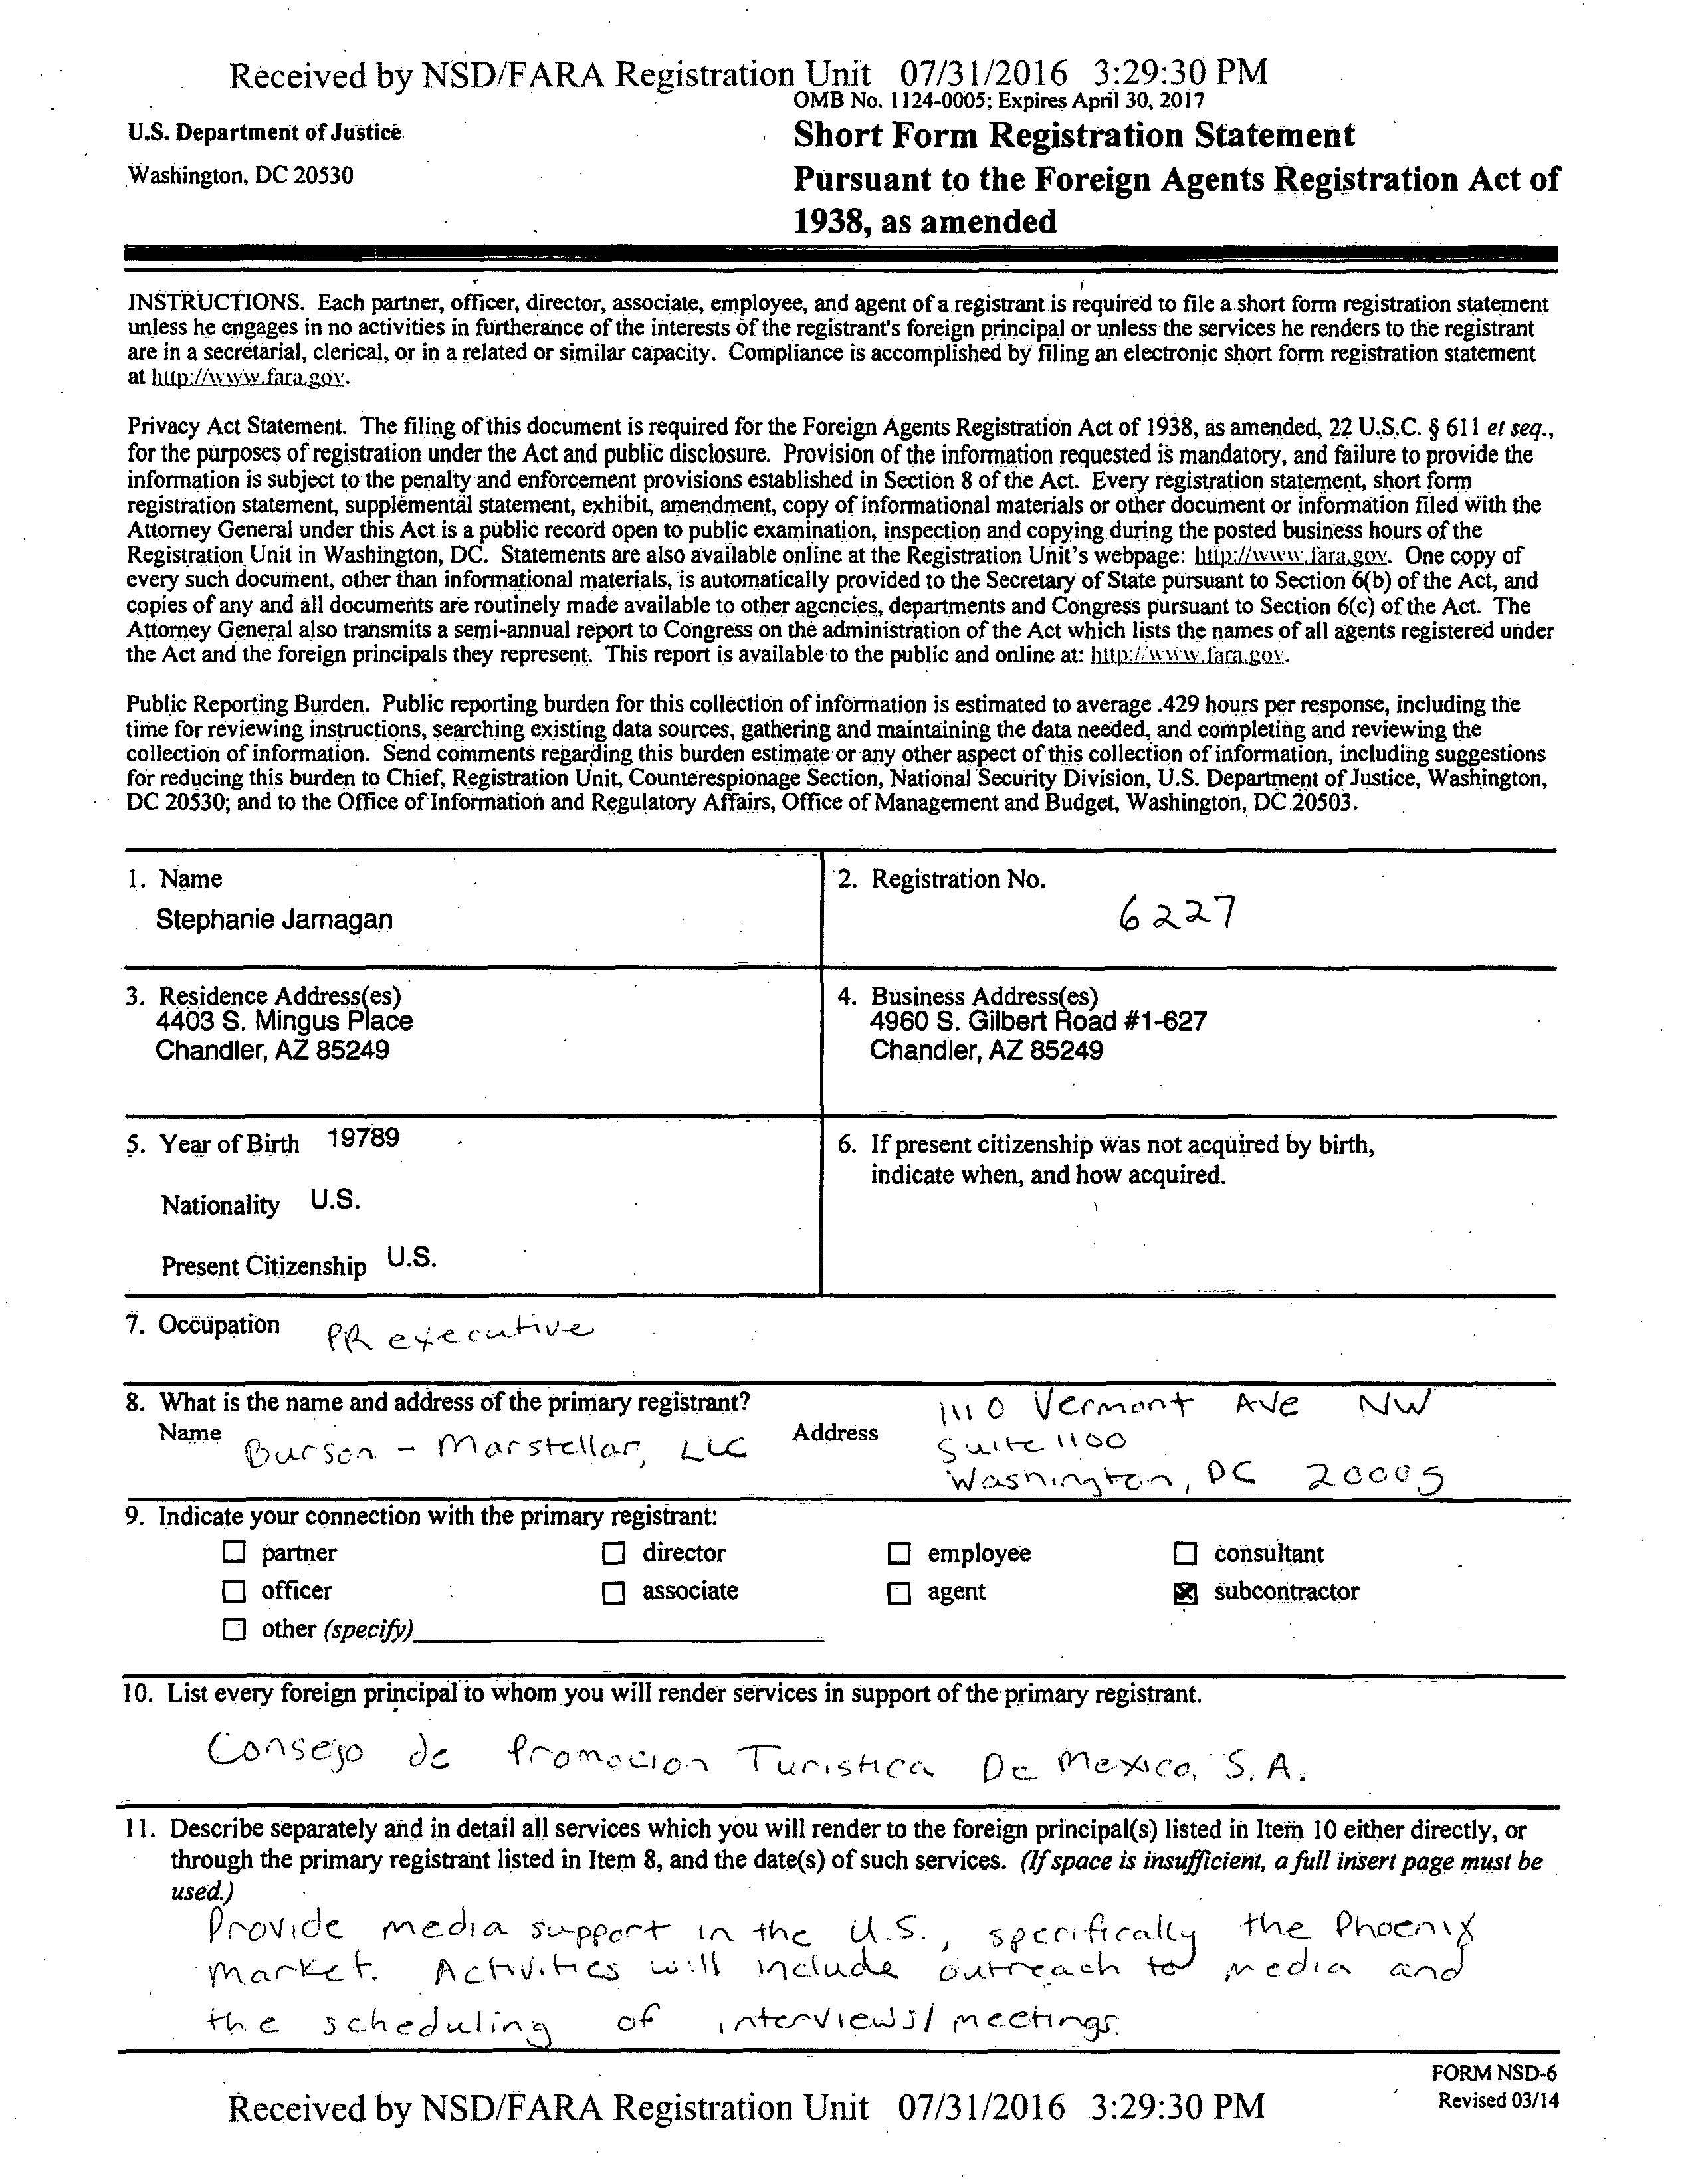 Received by NSD/FARA Registration Unit 07/31/2016 3:29:30 PM
OMB No. 1124-0005; Expires April 30, 2017
U.S. Department of Justice
Washington, DC 20530
Short Form Registration Statement
Pursuant to the Foreign Agents Registration Act of
1938, as amended
INSTRUCTIONS. Each partner, officer, director, associate, employee, and agent of a registrant is required to file a short form registration statement
unless he engages in no activities in furtherance of the interests of the registrant's foreign principal or unless the services he renders to the registrant
are in a secretarial, clerical, or in a related or similar capacity. Compliance is accomplished by filing an electronic short form registration statement
at http://www.fara.gov.
Privacy Act Statement. The filing of this document is required for the Foreign Agents Registration Act of 1938, as amended, 22 U.S.C. § 611 et seq.,
for the purposes of registration under the Act and public disclosure. Provision of the information requested is mandatory, and failure to provide the
information is subject to the penalty and enforcement provisions established in Section 8 of the Act. Every registration statement, short form
registration statement, supplemental statement, exhibit, amendment, copy of informational materials or other document or information filed with the
Attorney General under this Act is a public record open to public examination, inspection and copying during the posted business hours of the
Registration Unit in Washington, DC. Statements are also available online at the Registration Unit's webpage: http://www.fara.gov. One copy of
every such document, other than informational materials, is automatically provided to the Secretary of State pursuant to Section 6(b) of the Act, and
copies of any and all documents are routinely made available to other agencies, departments and Congress pursuant to Section 6(c) of the Act. The
Attorney General also transmits a semi-annual report to Congress on the administration of the Act which lists the names of all agents registered under
the Act and the foreign principals they represent. This report is available to the public and online at: http://www.fara.gov.
Public Reporting Burden. Public reporting burden for this collection of information is estimated to average .429 hours per response, including the
time for reviewing instructions, searching existing data sources, gathering and maintaining the data needed, and completing and reviewing the
collection of information. Send comments regarding this burden estimate or any other aspect of this collection of information, including suggestions
for reducing this burden to Chief, Registration Unit, Counterespionage Section, National Security Division, U.S. Department of Justice, Washington,
DC 20530; and to the Office of Information and Regulatory Affairs, Office of Management and Budget, Washington, DC 20503.
1. Name
Stephanie Jarnagan
2. Registration No.
6227
3. Residence Address(es)
4403 S. Mingus Place
Chandler, AZ 85249
4. Business Address(es)
4960 S. Gilbert Road #1-627
Chandler, AZ 85249
5. Year of Birth 19789
Nationality U.S.
Present Citizenship U.S.
6. If present citizenship was not acquired by birth,
indicate when, and how acquired.
7. Occupation PR executive
8. What is the name and address of the primary registrant?
Name Burson - Marstellar, LLC
Address 1110 Vermont Ave NW
Suite 1100
Washington, DC 20005
9. Indicate your connection with the primary registrant:
partner director employee consultant
officer associate agent subcontractor
other (specify)
10. List every foreign principal to whom you will render services in support of the primary registrant.
Consejo de Promocion Turistica De Mexico, S.A.
11. Describe separately and in detail all services which you will render to the foreign principal(s) listed in Item 10 either directly, or
through the primary registrant listed in Item 8, and the date(s) of such services. (If space is insufficient, a full insert page must be
used.)
Provide media support in the U.S., specifically the Phoenix
market. Activities will include outreach to media and
the scheduling of interviews/meetings.
FORM NSD-6
Revised 03/14
Received by NSD/FARA Registration Unit 07/31/2016 3:29:30 PM